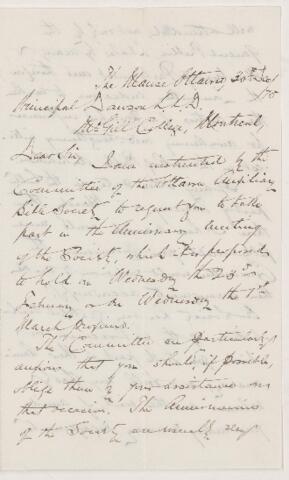 The Manse Ottawa 20th
/70
Principal Dawson L.L.D.
McGill College, Montreal,
Dear Sir, I am instructed by the
Committee of the Ottawa Auxiliary
Bible Society to request you to take
part in the Anniversary meeting
of the Society, which it is proposed
to hold on Wednesday the 23rd
February or on Wednesday the 1st
March
The Committee are particularly
anxious that you should, if possible,
oblige them by your assistance on
that occasion. The Anniversaries
of the Society are usually very